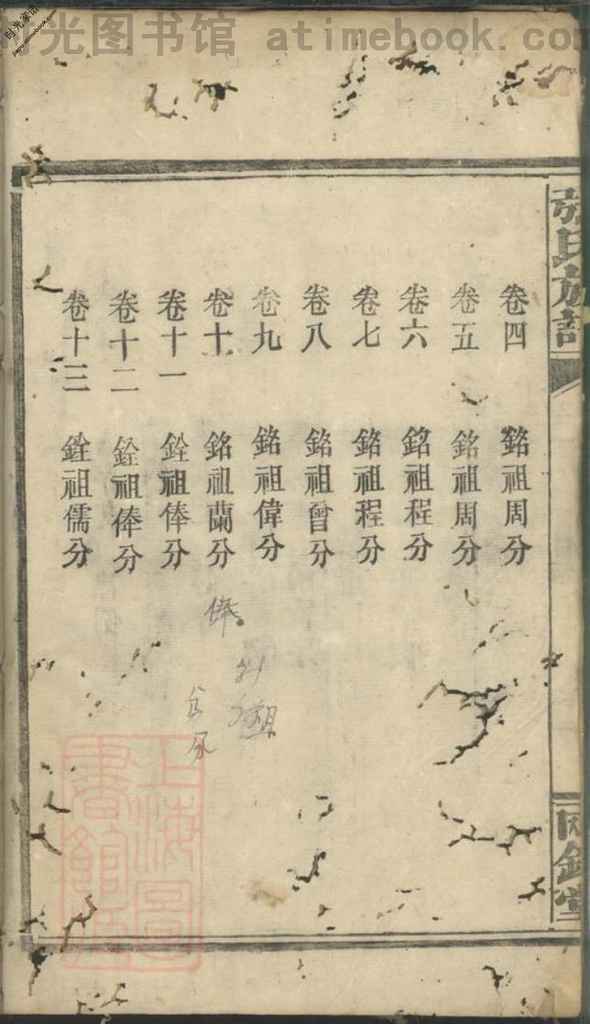 时光图书馆 atimebook.com
氏族譜
卷四 銘祖周分
卷五 銘祖周分
卷六 銘祖程分
卷七 銘祖程分
卷八 銘祖曾分
卷九 銘祖偉分
卷十 銘祖蘭分
卷十一 銓祖俸分
卷十二 銓祖俸分
卷十三 銓祖儒分
俸
堂
上海圖書館藏